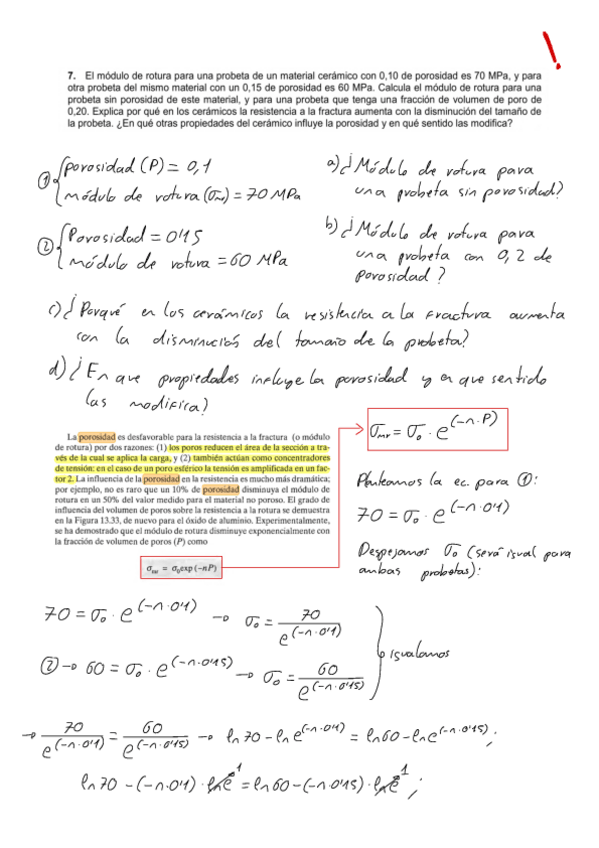 7. El módulo de rotura para una probeta de un material cerámico con 0,10 de porosidad es 70 MPa, y para
otra probeta del mismo material con un 0,15 de porosidad es 60 MPa. Calcula el módulo de rotura para una
probeta sin porosidad de este material, y para una probeta que tenga una fracción de volumen de poro de
0,20. Explica por qué en los cerámicos la resistencia a la fractura aumenta con la disminución del tamaño de
la probeta. ¿En qué otras propiedades del cerámico influye la porosidad y en qué sentido las modifica?
① porosidad (P) = 0,1
módulo de rotura (σmr) = 70 MPa
② Porosidad = 0'15
módulo de rotura = 60 MPa
a) ¿Módulo de rotura para
una probeta sin porosidad?
b) ¿Módulo de rotura para
una probeta con 0,2 de
porosidad?
c) ¿Porqué en los cerámicos la resistencia a la fractura aumenta
con la disminución del tamaño de la probeta?
d) ¿En que propiedades influye la porosidad y en que sentido
las modifica?
La porosidad es desfavorable para la resistencia a la fractura (o módulo
de rotura) por dos razones: (1) los poros reducen el área de la sección a tra-
vés de la cual se aplica la carga, y (2) también actúan como concentradores
de tensión: en el caso de un poro esférico la tensión es amplificada en un fac-
tor 2. La influencia de la porosidad en la resistencia es mucho más dramática;
por ejemplo, no es raro que un 10% de porosidad disminuya el módulo de
rotura en un 50% del valor medido para el material no poroso. El grado de
influencia del volumen de poros sobre la resistencia a la rotura se demuestra
en la Figura 13.33, de nuevo para el óxido de aluminio. Experimentalmente,
se ha demostrado que el módulo de rotura disminuye exponencialmente con
la fracción de volumen de poros (P) como
σmr = σ0exp (-nP)
σmr = σ0 · e^(-n·P)
Planteamos la ec. para ①:
70 = σ0 · e^(-n·0'1)
Despejamos σ0 (será igual para
ambas probetas):
70 = σ0 · e^(-n·0'1) → σ0 = 70 / e^(-n·0'1)
② → 60 = σ0 · e^(-n·0'15) → σ0 = 60 / e^(-n·0'15)
igualamos
→ 70 / e^(-n·0'1) = 60 / e^(-n·0'15) → ln70 - ln e^(-n·0'1) = ln60 - ln e^(-n·0'15);
ln70 - (-n·0'1) · ln e^1 = ln60 - (-n·0'15) · ln e^1;